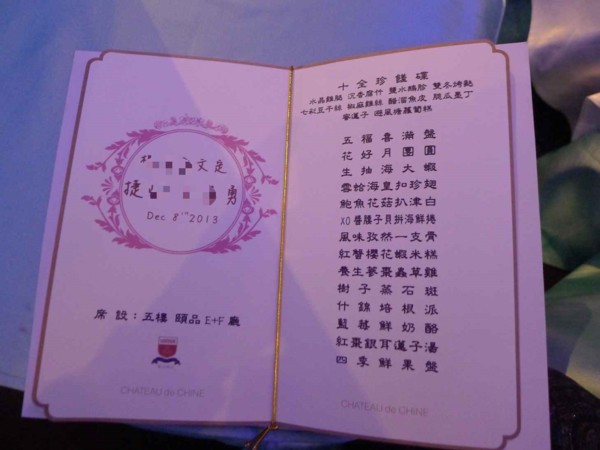 文定
捷 勇
Dec 8TH 2013
席 設：五樓 頤品 E+F 廳
CHATEAU de CHINE
十全珍饈碟
水晶雞腿 沉香腐竹 鹽水鴨胗 雙冬烤麩
七彩豆干絲 椒麻雞絲 醋溜魚皮 胡瓜墨丁
蜜蓮子 避風塘蘿蔔糕
五福喜滿盤
花好月團圓
生抽海大蝦
雪蛤海皇扣珍翅
鮑魚花菇扒津白
XO醬牌子貝拼海鮮捲
風味孜然一支骨
紅蟳櫻花蝦米糕
養生蔘棗蟲草雞
樹子蒸石斑
什錦培根派
藍莓鮮奶酪
紅棗銀耳蓮子湯
四季鮮果盤
CHATEAU de CHINE